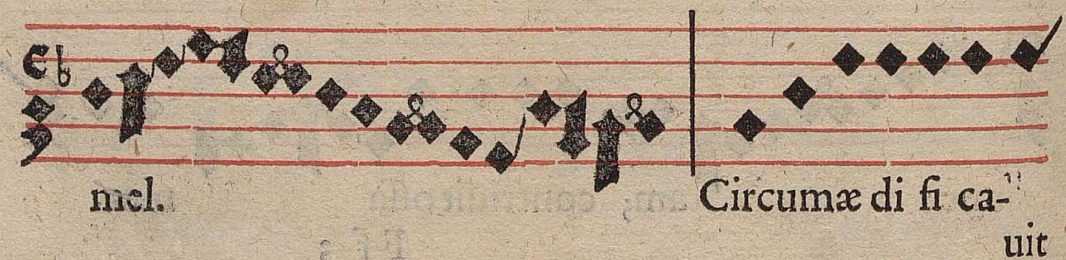 mel. Circumæ di fi ca-
uit